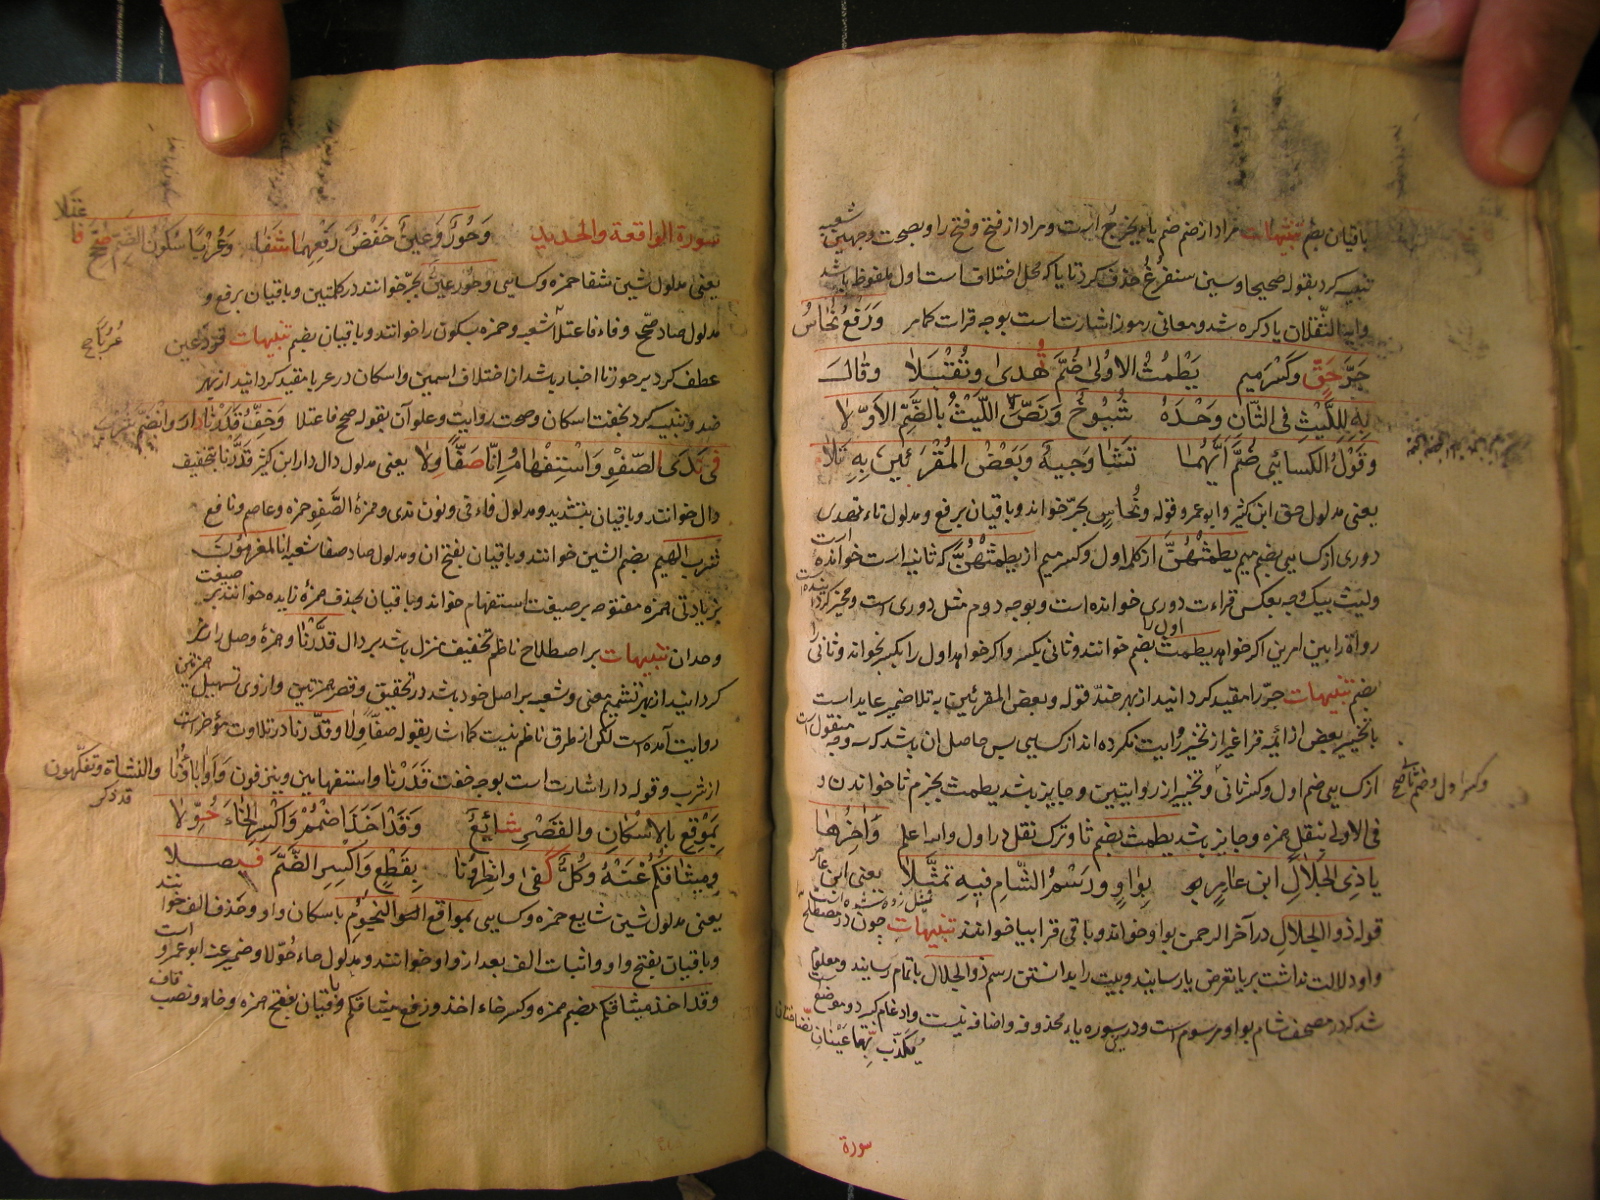 باقیان بضم تنبیهات مراد از ضم ضم یاء یخرج است و مراد از فتح و فتح را و بصحت وجهین شعبه
تنبیه کرد بقوله صحیحا و سین سنفرغ حذف کرد تا یا که محل اختلاف است اول ملفوظ باشد
وایه الثقلان یاد کرده شد و معانی رموز اشارت است بوجه قرات کما مر وَرَفْعُ نُحَاسٌ
جَرَّ حَقٌّ وَكَسْرَ مِيمِ يَطْمِثْ الاُولَى ضُمَّ تُهْدَى وَتُقْبَلَا وَقَالَ
بِهِ لِلَّيْثِ فِي الثَّانِ وَحْدَهُ شُيُوخٌ وَنَصُّ اللَّيْثِ بِالضَّمِّ الاَوَّلَا
وَقَوْلُ الكِسَائِي ضُمَّ أَيَّهُمَا تَشَا وَجِيهٌ وَبَعْضُ المُقْرَئِينَ بِهِ تَلَا
یعنی مدلول حق ابن کثیر و ابوعمرو قوله و نُحاسٍ بجرّ خواند و باقیان برفع و مدلول تاء تهدی
دوری از کسایی بضم میم یطمثهنّ از کلمه اول و کسر میم از یطمثهنّ که ثانیه است خوانده است
ولیث بیک وجه بعکس قراءت دوری خوانده است و بوجه دوم مثل دوری است و مخیر کرده
رواة را بین امرین اگر خواهد یطمث اول را بضم خوانند و ثانی بکسر و اگر خواهد اول را بکسر بخواند و ثانی را
بضم تنبیهات جرّ را مقید کردانید از بهر ضد قوله و بعض المقرئین به تلا ضمیر عاید است
بالتخییر بعض از ائمه قرا غیر از تخییر روایت نکرده اند از کسایی پس حاصل ان باشد که سه وجه منقول است
از کسایی ضم اول و کسر ثانی و تخییر از روایتین و جایز باشد یطمث بجزم ثا خواندن و
وکسر اول و ضم ثانی صح
فی الاولی بنقل همزه و جایز باشد یطمث بضم ثا و ترک نقل در اول والله اعلم وَآخِرُهَا
يَا ذِي الجَلَالِ ابنُ عَامِرٍ بِوَاوٍ وَرَسْمُ الشَّامِ فِيهِ تَمَثَّلَا یعنی ابن عامر
قوله ذو الجلال در آخر الرحمن بواو خواند و باقی قرا بیا خوانند تنبیهات چون در مصطلح
واو دلالت نداشت بر یا تعرض یا رسانید و بیت را بدانستن رسم ذو الجلال باتمام رسانید و معلوم
شد که در مصحف شام بواو مرسوم است و درین سوره یاء محذوفه و اضافه نیست و ادغام کبیر دو موضع است
یکذّب بّها عینان نّضاختان
سورة
سورة الواقعة والحدید وَحُورٌ وَعِينٌ خَفْضُ رَفْعِهِمَا شَفَا وَعُرْبًا سُكُونُ الضَّمِّ صُحِّحَ فَاعْتَلَا
یعنی مدلول شین شفا حمزه و کسایی وحورٍ عینٍ بجرّ خوانند در کلمتین و باقیان برفع و
مدلول صاد صحح و فاء فاعتلا شعبه و حمزه بسکون را خوانند و باقیان بضم تنبیهات قوله عین
عُرُبًا صح
عطف کرد بر حور تا اخبار باشد از اختلاف اسمین و اسکان در عربا مقید کردانید از بهر
ضد و تنبیه کرد بخفت اسکان و صحت روایت و علو آن بقوله صحح فاعتلا وَخِفُّ قَدَرْنَا دَارَ وَانْضَمَّ شُرْبَ
فِي نَدَى الصَّفْوِ وَاسْتِفْهَامُ إِنَّا صَفَا وِلَا یعنی مدلول دال دار ابن کثیر قدرنا بتخفیف
دال خوانند و باقیان بتشدید و مدلول فاء فی و نون ندی و همزهٔ الصفو حمزه و عاصم و نافع
شرب الهیم بضم الشین خوانند و باقیان بفتح ان و مدلول صاد صفا شعبه ائنا لمغرمون
بزیادتی همزه مفتوحه بر صیغت استفهام خواند و باقیان بحذف همزهٔ زایده خوانند بر صیغت
وحدان تنبیهات بر اصطلاح ناظم تخفیف منزل باشد بر دال قدرنا و همزهٔ وصل را ذکر
کردانید از بهر تتمیم معنی و شعبه بر اصل خود باشد در تحقیق و قصر همزتین و از وی تسهیل همزتین
روایت آمده است لکن از طرق ناظم نیست کما اشار بقوله صفا ولا و قدرنا در تلاوت مؤخر است
از شرب و قوله دار اشارت است بوجه خفت قدرنا و استفهامین و ینزفون واوآباؤنا والنشاة وتفکهون
قد ذکر
بِمَوْقِعِ بِالإِسْكَانِ وَالقَصْرِ شَائِعٌ وَقَدْ أَخَذَ اضْمُمْ وَاكْسِرِ الخَاءَ حُوَّلَا
وَمِيثَاقُكُمْ عَنْهُ وَكُلٌّ كَفَى وَأَنْظِرُونَا بِقَطْعٍ وَاكْسِرِ الضَّمَّ فَيْصَلَا
یعنی مدلول شین شایع حمزه و کسایی بمواقع النجوم باسکان واو و حذف الف خوانند
و باقیان بفتح واو و اثبات الف بعد از واو خوانند و مدلول حاء حوّلا و ضمیر عنه ابوعمرو است
وقد اخذ میثاقکم بضم همزه و کسر خاء اخذ و رفع میثاقکم و باقیان بفتح همزه و خاء و نصب قاف